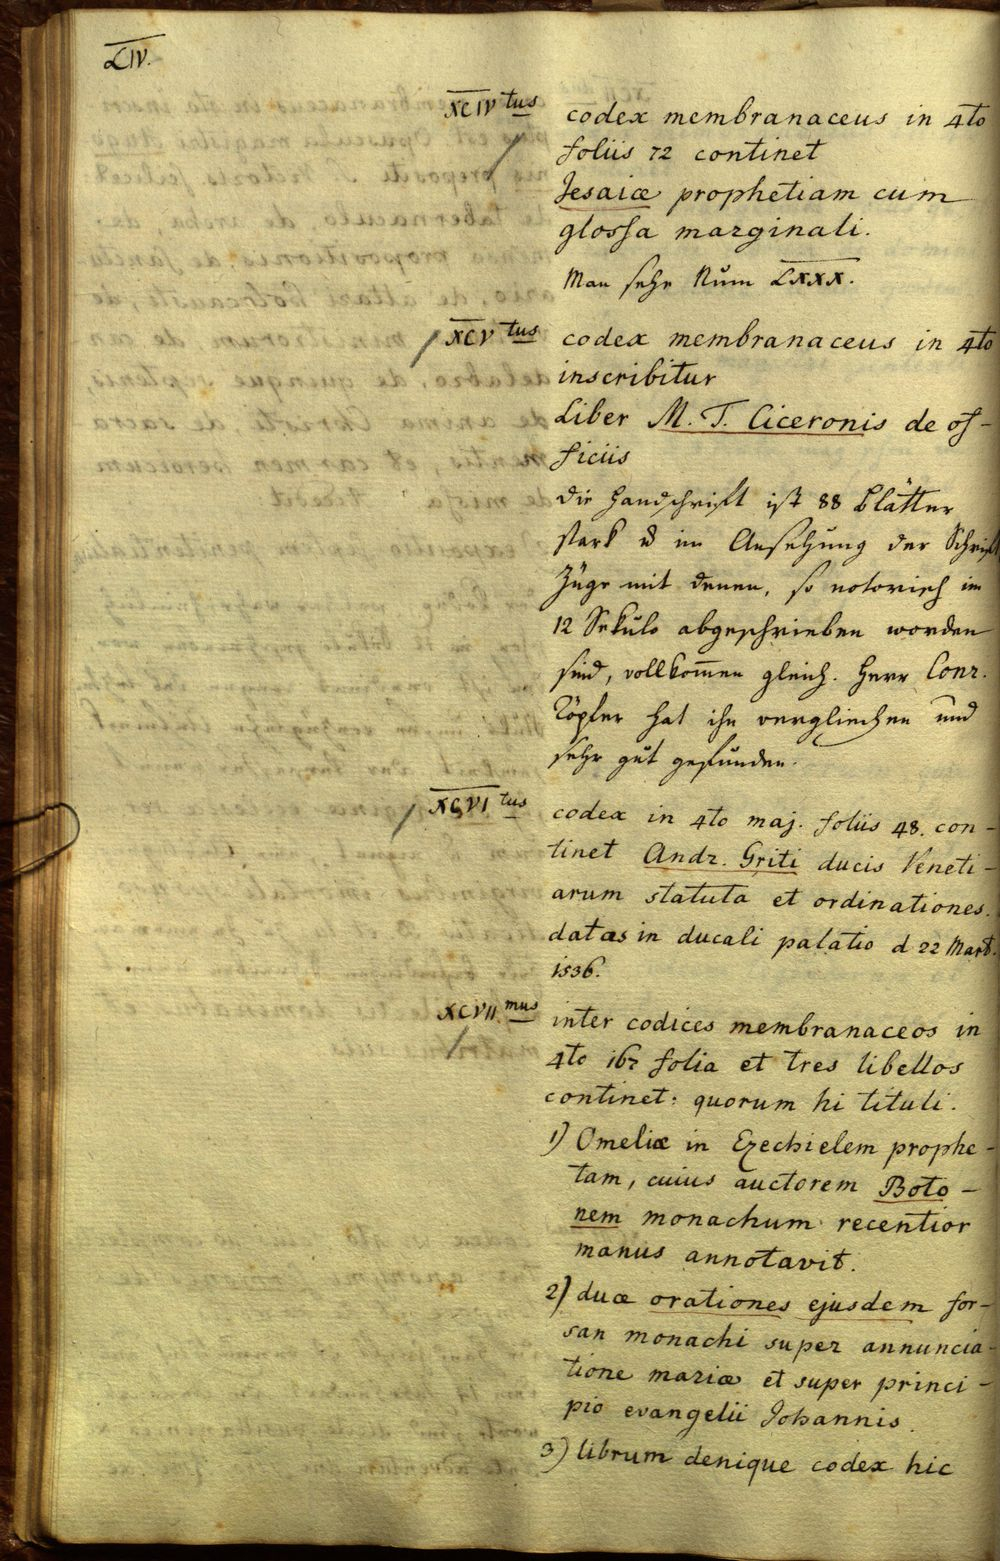 LIV.
XCIVtus codex membranaceus in 4to
foliis 72 continet
Jesaiæ prophetiam cum
glossa marginali.
Man sehe Num LXXX.
XCVtus codex membranaceus in 4to
inscribitur
Liber M. T. Ciceronis de of-
ficiis
Die Handschrift ist 88 Blätter
stark u im Ansehung der Schrift
Züge mit denen, so notorisch im
12 Sekulo abgeschrieben worden
sind, vollkom̅en gleich. Herr Conr.
Töpfer hat ihn verglichen und
sehr gut gefunden.
XCVItus codex in 4to maj. foliis 48. con-
tinet Andr. Griti ducis Veneti-
arum statuta et ordinationes.
datas in ducali palatio d 22 Mart.
1536.
XCVII.mus inter codices membranaceos in
4to 167 folia et tres libellos
continet: quorum hi tituli.
1) Omeliæ in Ezechielem prophe-
tam, cuius auctorem Boto-
nem monachum recentior
manus annotavit.
2) duæ orationes ejusdem for-
san monachi super annuncia-
tione mariæ et super princi-
pio evangelii Johannis.
3) librum denique codex hic